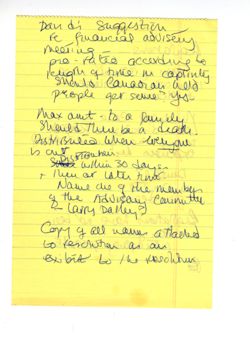 Dandi's Suggestion
re financial advisory
meeting -
pro-rated according to
length of time in captivity
Should Canadian held
people get same - yes
Max amt - to a family
should there be a death.
Distributed when everyone
is out
within 30 days
+ then at later time
Name one of the members
of the Advisory Committee
- Larry Dalley?
Copy of all names attached
to resolution as an
exhibit to the resolution